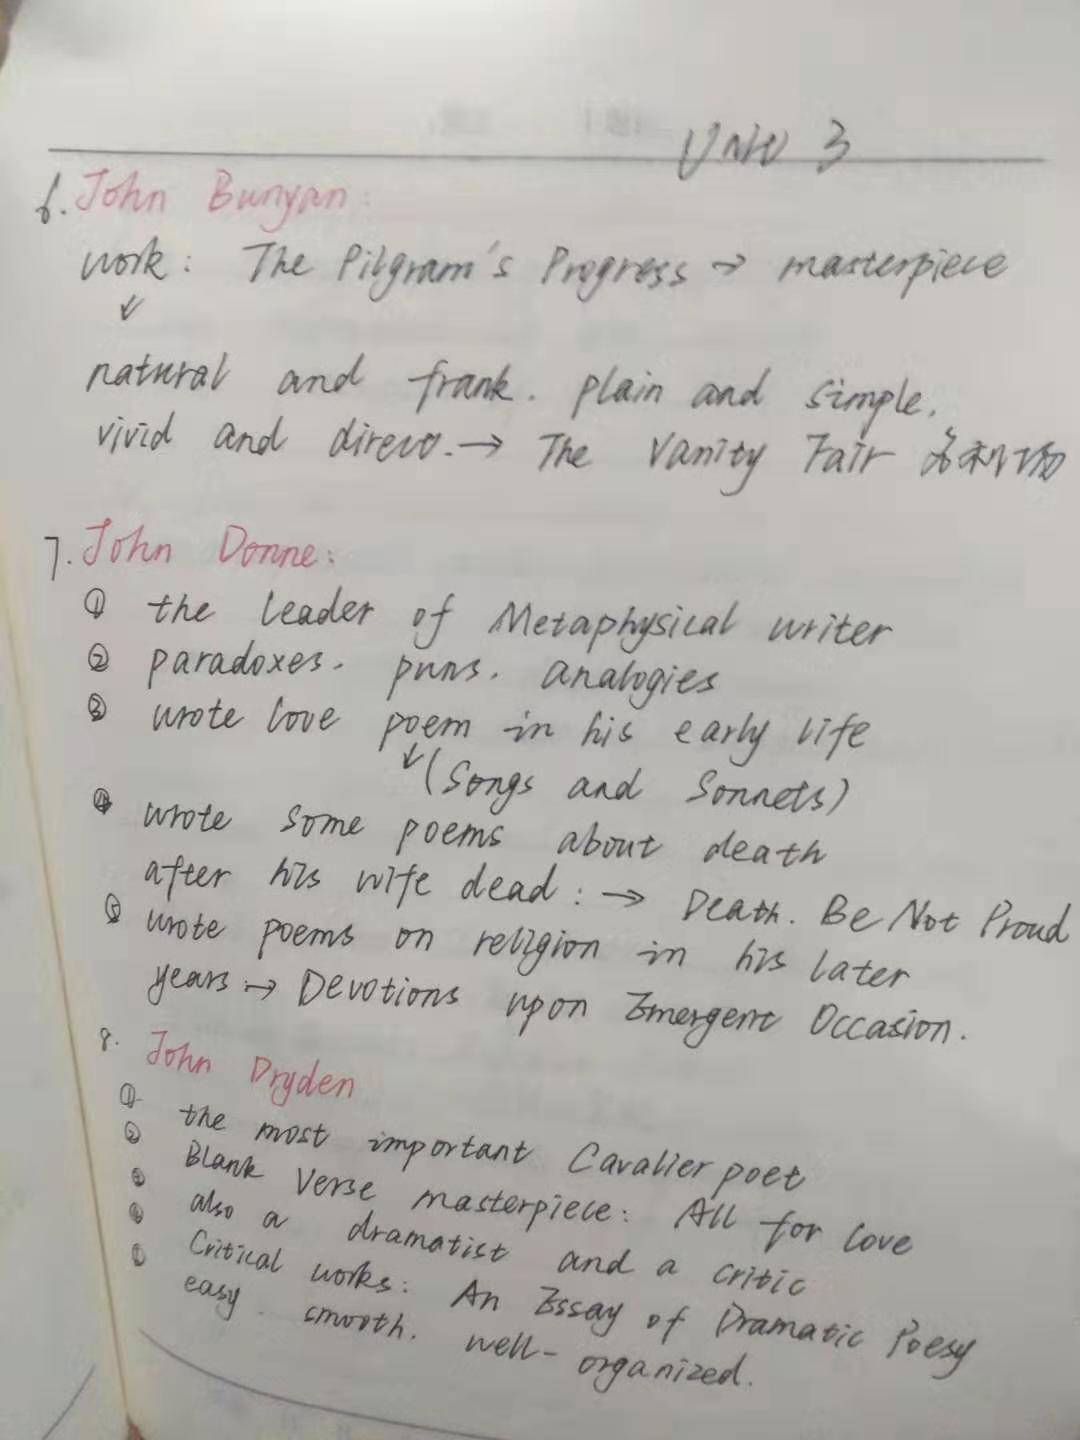 Unit 3
6. John Bunyan:
work: The Pilgram's Progress → masterpiece
↓
natural and frank. plain and simple.
vivid and direct. → The Vanity Fair 名利场
7. John Donne:
① the leader of Metaphysical writer
② paradoxes. puns. analogies
③ wrote love poem in his early life
↓ (Songs and Sonnets)
④ wrote some poems about death
after his wife dead: → Death. Be Not Proud
⑤ wrote poems on religion in his later
years: → Devotions upon Emergent Occasion.
8. John Dryden
① the most important Cavalier poet
② Blank Verse masterpiece: All for love
③ also a dramatist and a critic
④ Critical works: An Essay of Dramatic Poesy
⑤ easy. smooth. well-organized.